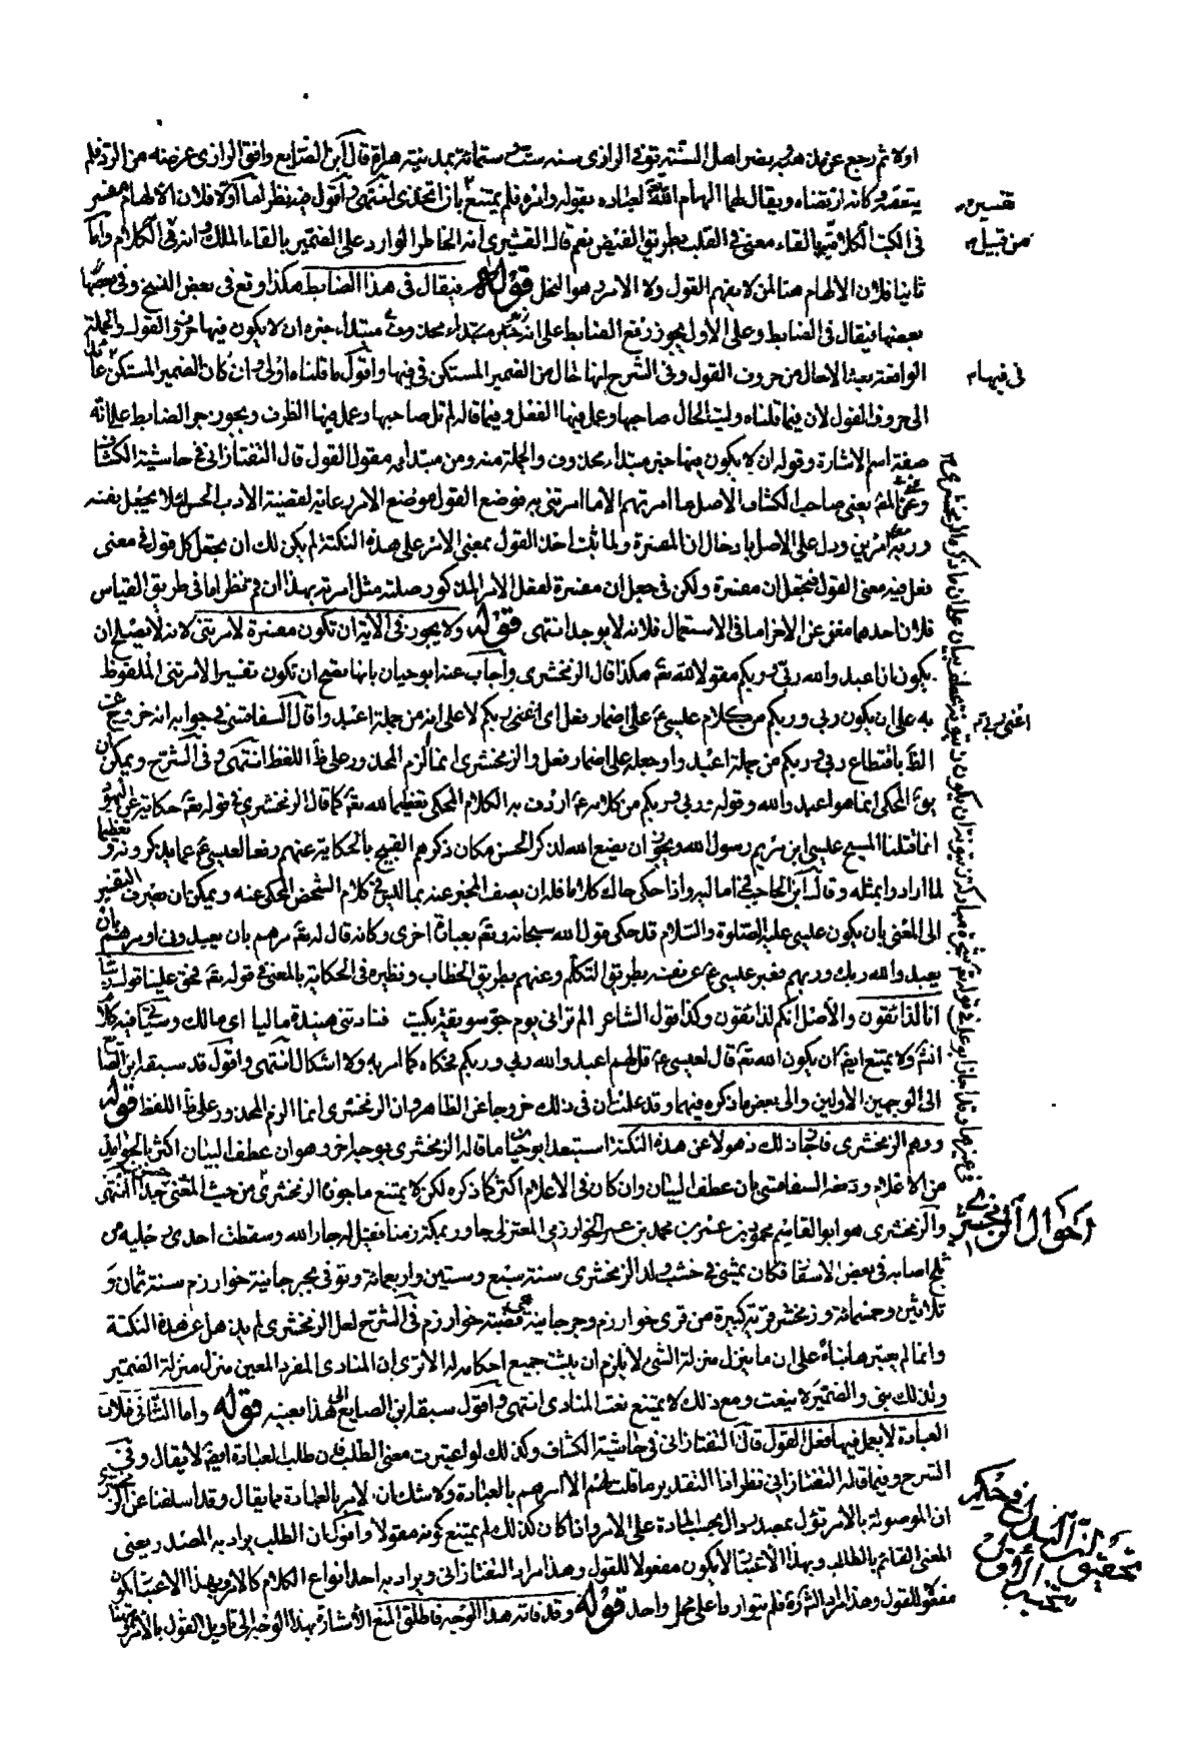 اولا ثم رجع عن مذهبه بنصر اهل السنة توفى الرازى سنة ست وستمائة بمدينة هراة قال ابن الصايع وافق الرازى غرضه من الرد فلم
وكانه ارتضاه ويقال لهما الهام الله لعباده بقوله وامره فلم يمتنع بان اتخذى انتهى واقول فيه نظر اما اولا فلان الالهام مفسر
فى الكتب الكلامية بالقاء معنى فى القلب بطريق الفيض نعم قال القشيرى انه الخاطر الوارد على الضمير بالقاء الملك وانه فى الكلام واما
ثانيا فلان الالهام هنا لمن لا يفهم القول ولا الامر وهو النحل قوله فيقال فى هذا الضابط هكذا وقع فى بعض النسخ وفى
بعضها فيقال فى الضابط وعلى الاول يجوز رفع الضابط على انه خبر مبتداء محذوف مبتداء خبره ان لا يكون فيها حروف القول والجملة
الواقعة بعد الحال من حروف القول وفى الشرح انها حال من الضمير المستكن فى فيها واقول ما قلناه اولى وان كان الضمير المستكن
الى حروف القول لان فيما قلناه وليت الحال صاحبها وعمل فيها الفعل وفيما قاله لم تل صاحبها وعمل فيها الظرف ويجوز جر الضابط على انه
صفة اسم الاشارة وقوله ان لا يكون فيها خبر مبتداء محذوف والجملة منه ومن مبتدأه مقول القول قال التفتازانى فى حاشية الكشاف
يعنى صاحب الكشاف الاصل ما امرتهم الا ما امرتنى به فوضع القول موضع الامر رعاية لقضية الادب الحسن لئلا يجعل نفسه
وربه امرين ودل على الاصل بادخال ان المفسرة ولما ثبت اخذ القول بمعنى الامر على هذه النكتة لم يكن لك ان تجعل كل قول فى معنى
فعل فيه معنى القول فتجعل ان مفسرة ولكن فى جعل ان مفسرة لفعل الامر المذكور صلته مثل امرته بهذا ان قم نظر اما فى طريق القياس
فلان احدهما مغن عن الاخر اما فى الاستعمال فلانه لا يوجد انتهى قوله ولا يجوز فى الاية ان تكون مفسرة لامرتنى لانه لا يصلح ان
يكون ان اعبدوا الله ربى وربكم مقولا لله تعالى هكذا قال الزمخشرى واجاب عنه ابو حيان بانها يصح ان تكون تفسيرا لامرتنى الملفوظ
به على ان يكون ربى وربكم من كلام عيسى على اضمار فعل اى اعنى ربى وربكم لا على انه من جملة اعبدوا قال السفاقسى فى جوابه انه خروج عن
الظاهر بانقطاع ربى وربكم من جملة اعبدوا وجعله على اضمار فعل والزمخشرى انما الزم المحذور على ظاهر اللفظ انتهى وفى الشرح ويمكن ان
المحكى انما هو اعبدوا الله وقوله ربى وربكم من كلامه اردف به الكلام المحكى تعظيما لله تعالى كما قال الزمخشرى فى قوله تعالى حكاية عن اليهود
انا قتلنا المسيح عيسى ابن مريم رسول الله ويجوز ان يضع الله الذكر الحسن مكان ذكرهم القبيح بالحكاية عنهم رفعا لعيسى عما يذكرونه وتعظيما
لما ارادوا بمثله وقال ابن الحاجب فى اماليه واذا حكى حاك كلاما فله ان يصف المخبر عنه بما ليس فى كلام الشخص المحكى عنه ويمكن ان يصرف التفسير
الى المعنى بان يكون عيسى عليه الصلوة والسلام قد حكى قول الله سبحانه وتعالى بعبارة اخرى وكانه قال له تعالى مرهم بان يعبدونى او مرهم بان
يعبدوا الله ربك وربهم فعبر عيسى عن نفسه بطريق التكلم وعنهم بطريق الخطاب ونظيره فى الحكاية بالمعنى قوله تعالى فحق علينا قول ربنا
انا لذائقون والاصل انكم لذائقون وكذا قول الشاعر الم ترانى يوم جو سويقة بكيت فنادتنى هنيدة ماليا اى مالك
ولا يمتنع ايضا ان يكون الله تعالى قال لعيسى قل لهم اعبدوا الله ربى وربكم فحكاه كما امر به ولا اشكال انتهى واقول قد سبقه ابن الصايع
الى الوجهين الاولين والى بعض ما ذكره فيهما وقد علمت ان فى ذلك خروجا عن الظاهر وان الزمخشرى انما الزم المحذور على ظاهر اللفظ قوله
ووهم الزمخشرى فاجاز ذلك ذهولا عن هذه النكتة استبعد ابو حيان ما قاله الزمخشرى بوجه اخر وهو ان عطف البيان اكثر بالجوامد
من الاعلام ودفعه السفاقسى بان عطف البيان وان كان فى الاعلام اكثر كما ذكره لكن لا يمتنع ما جوزه الزمخشرى من حيث المعنى انتهى
والزمخشرى هو ابو القاسم محمود بن عمر بن محمد بن عمر الخوارزمى المعتزلى جاور بمكة زمنا فقيل له جار الله وسقطت احدى رجليه من
ثلج اصابه فى بعض الاسفار فكان يمشى فى خشب ولد الزمخشرى سنة سبع وستين واربعمائة وتوفى بجرجانية خوارزم سنة ثمان و
ثلاثين وخمسمائة وزمخشر قرية كبيرة من قرى خوارزم وجرجانية قصبة خوارزم فى الشرح لعل الزمخشرى لم يذهل عن هذه النكتة
وانما لم يعتبرها بناء على ان ما ينزل منزلة الشئ لا يلزم ان يثبت جميع احكامه له الا ترى ان المنادى المفرد المعين منزل منزلة الضمير
ولذلك بنى والضمير لا ينعت ومع ذلك لا يمتنع نعت المنادى انتهى واقول سبقه ابن الصايع الى هذا بعينه قوله واما الثانى فلان
العبادة لا يعمل فيها فعل القول قال التفتازانى فى حاشية الكشاف وكذلك لو اعتبرت معنى الطلب فان طلب العبادة ايضا لا يقال وفى
الشرح وفيما قاله التفتازانى نظر اذا التقدير ما قلت لهم الا الامر بالعبادة ولا شك ان الامر بالعبادة مما يقال وقد اسلفنا عن الزمخشرى
ان الموصولة بالامر تؤل بمصدر دال بحسب المادة على الامر واذا كان كذلك لم يمتنع كونه مقولا واقول ان الطلب يراد به المصدر يعنى
المعنى القائم بالطالب وبهذا الاعتبار لا يكون مفعولا للقول وهذا مراد التفتازانى ويراد به احد انواع الكلام كالامر وبهذا الاعتبار يكون
مفعولا للقول وهذا مراد الشرح فلم يتوارد على محل واحد قوله وقد فاته هذا الوجه فاطلق المنع الاشارة بهذا الوجه الى تاويل القول بالامر
من قبيل
فى فيها م
احوال الزمخشرى